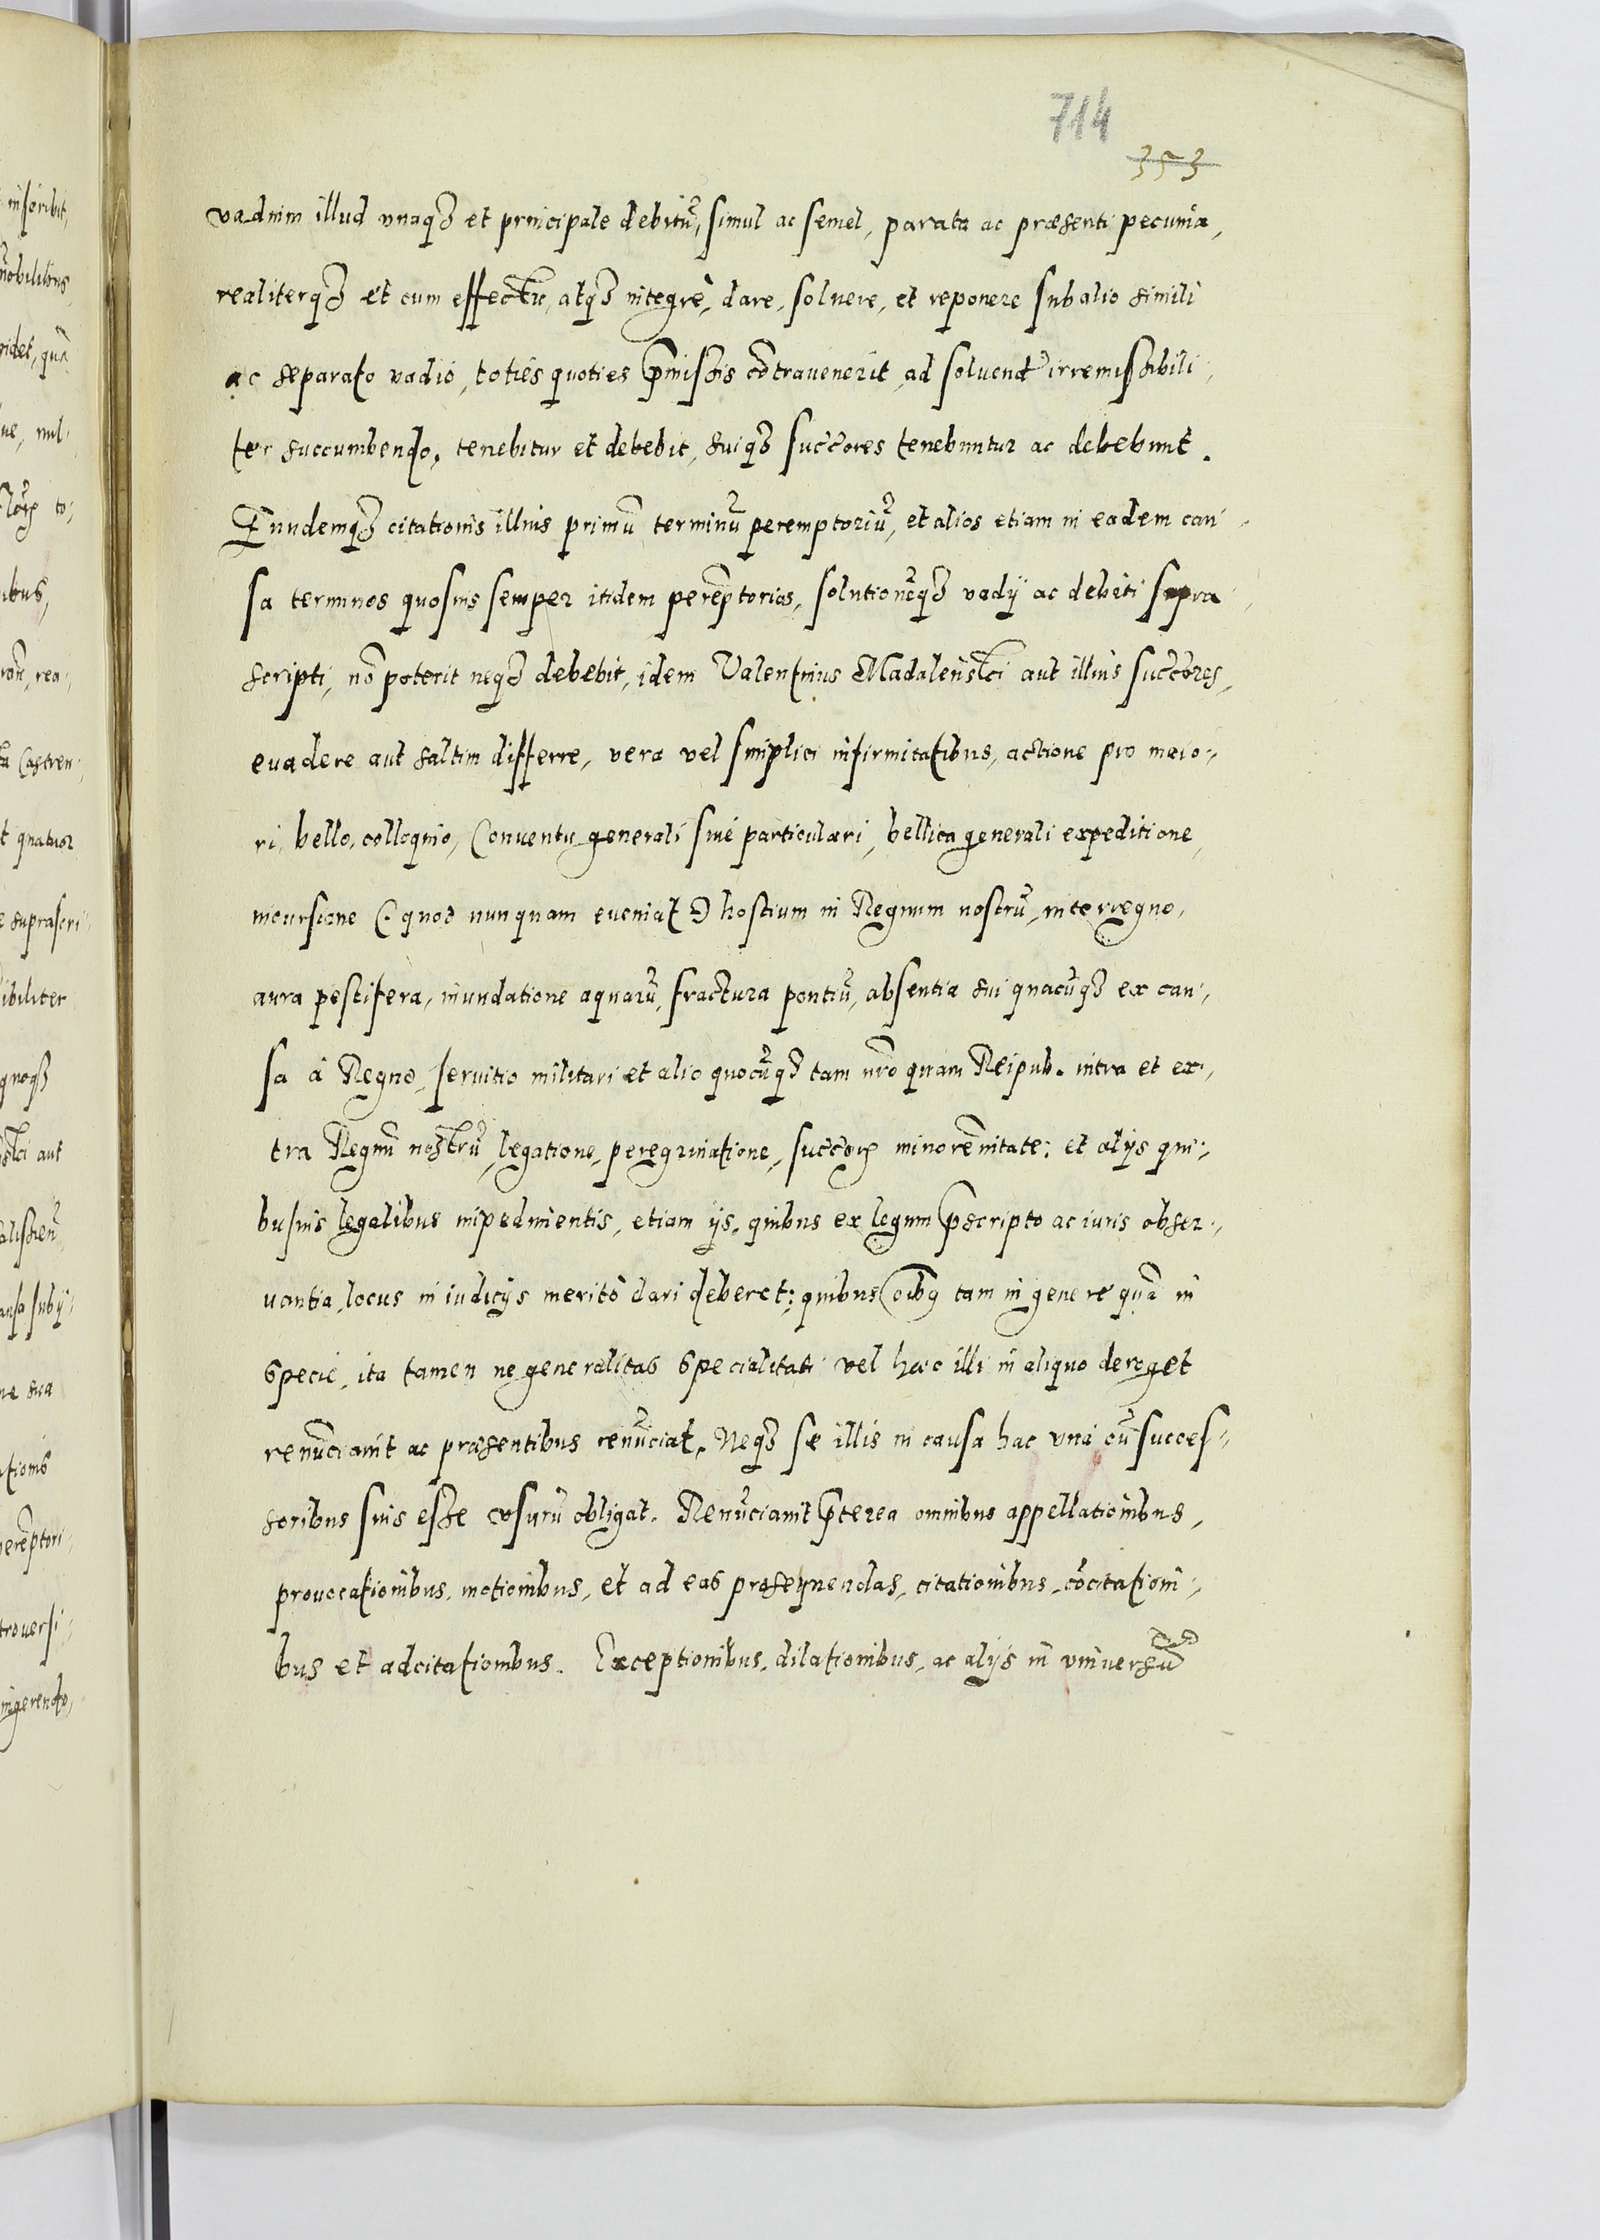 714
353
vadium illud vnaq3 et principale debitū, simul ac semel, parata ac præsenti pecunia,
realiterq3 et cum effectu, atq3 integrè, dare, soluere, et reponere sub alio simili
ac separato vadio, toties quoties p̄missis cōtrauenerit, ad soluend irremissibili,
ter succumbendo, tenebitur et debebit, suiq3 succ̄ores tenebuntur ac debebunt.
Eundemq3 citationis illius primū terminū peremptoriū, et alios etiam in eadem cau-
sa terminos quosuis semper itidem perēptorios, solutionēq3 vadÿ ac debiti supra
scripti, nō poterit neq3 debebit, idem Valentinus Madalenski aut illius succ̄ores,
euadere aut saltim differre, vera vel simplici infirmitatibus, actione pro maio-
ri, bello, colloquio, Conuentu generali siue particulari, bellica generali expeditione,
incursione (quod nunquam eueniat) hostium in Regnum nostrū, interregno,
aura pestifera, inundatione aquarū, fractura pontiū, absentia sui quacūq3 ex cau-
sa à Regno, seruitio militari et alio quocūq3 tam nr̄o quam Reipub. intra et ex-
tra Regnū nostrū, legatione, peregrinatione, succ̄orꝝ minorēnitate: et alÿs qui-
busuis legalibus impedimentis, etiam ÿs, quibus ex legum p̄scripto ac iuris obser-
uantia, locus in iudicÿs meritò dari deberet: quibus oībꝯ tam in genere quā in
specie, ita tamen ne generalitas specialitati vel hæc illi in aliquo deroget
renūciauit ac præsentibus renūciat. Neq3 se illis in causa hac vnà cū succes-
soribus suis esse vsurū obligat. Renūciauit p̄terea omnibus appellationibus,
prouocationibus, motionibus, et ad eas prosequendas, citationibus, cōcitationi-
bus et adcitationibus. Exceptionibus, dilationibus, ac alÿs in vniuersū